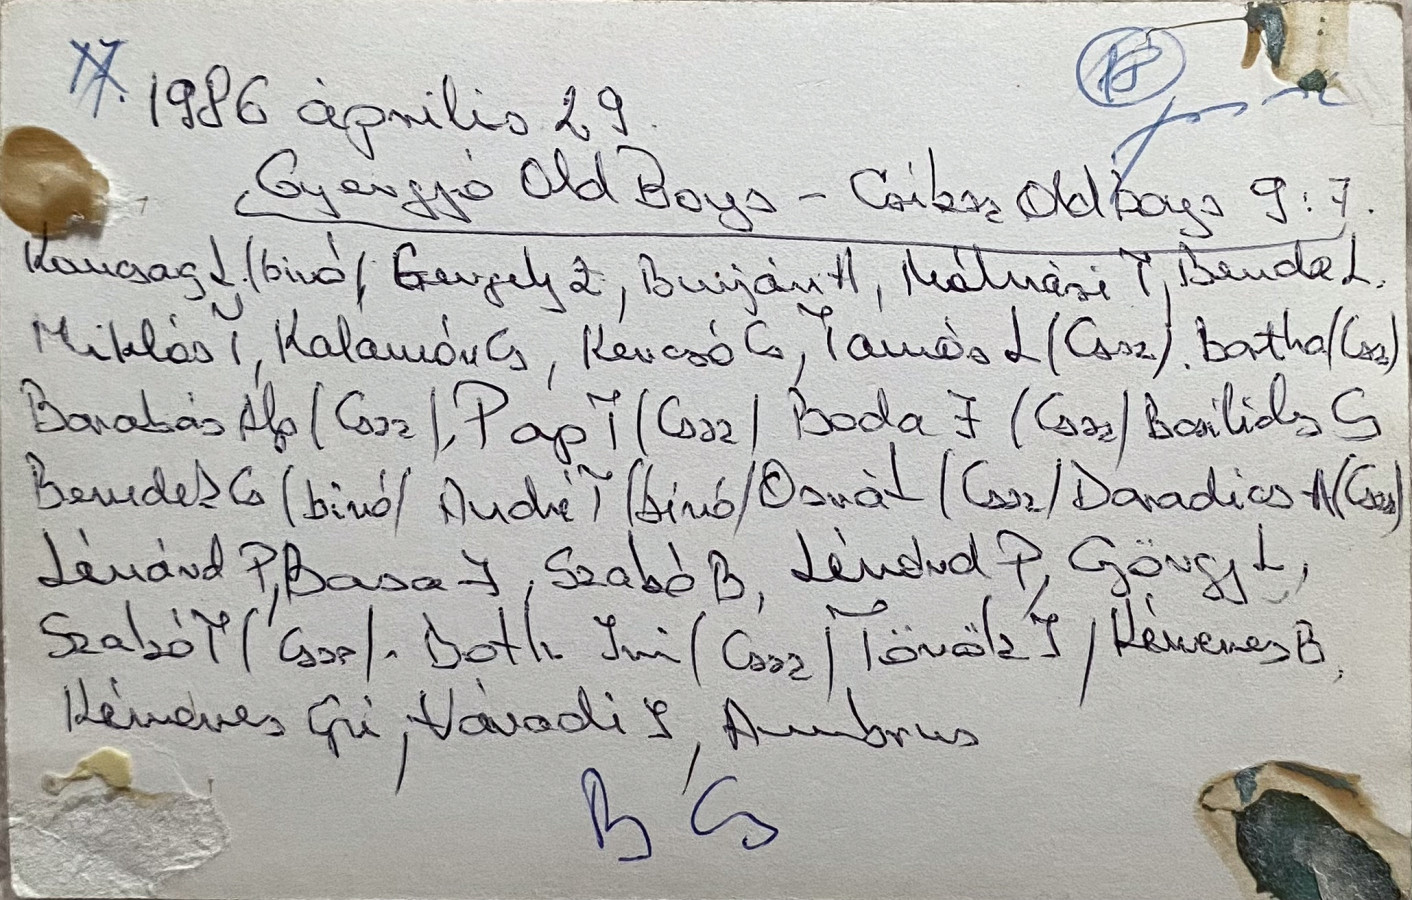 17.
18
1986 április 29.
Gyergyó Old Boys – Csíksz Old boys 9:7.
L. (bíró/ Gergely Z, Burján A, Málnási T, Benda L.
Miklós T, Kalamár G, Kercsó G, Tamás L (Cssz). Bartha/(Cssz)
Barabás Alp (Cssz), Pap T (Cssz/ Boda J (Cssz/ Basilides G
Benedek G (bíró/ André T (bíró/ Osvát (Cssz/ Daradics A/(Cssz)
Lénárd P, Basa J, Szabó B, Lénárd P, György L,
Szabó T (Cssz/. Both Imi (Cssz/ Török J, Kémenes B,
Kémenes Gyi, Váradi J, Ambrus
B G